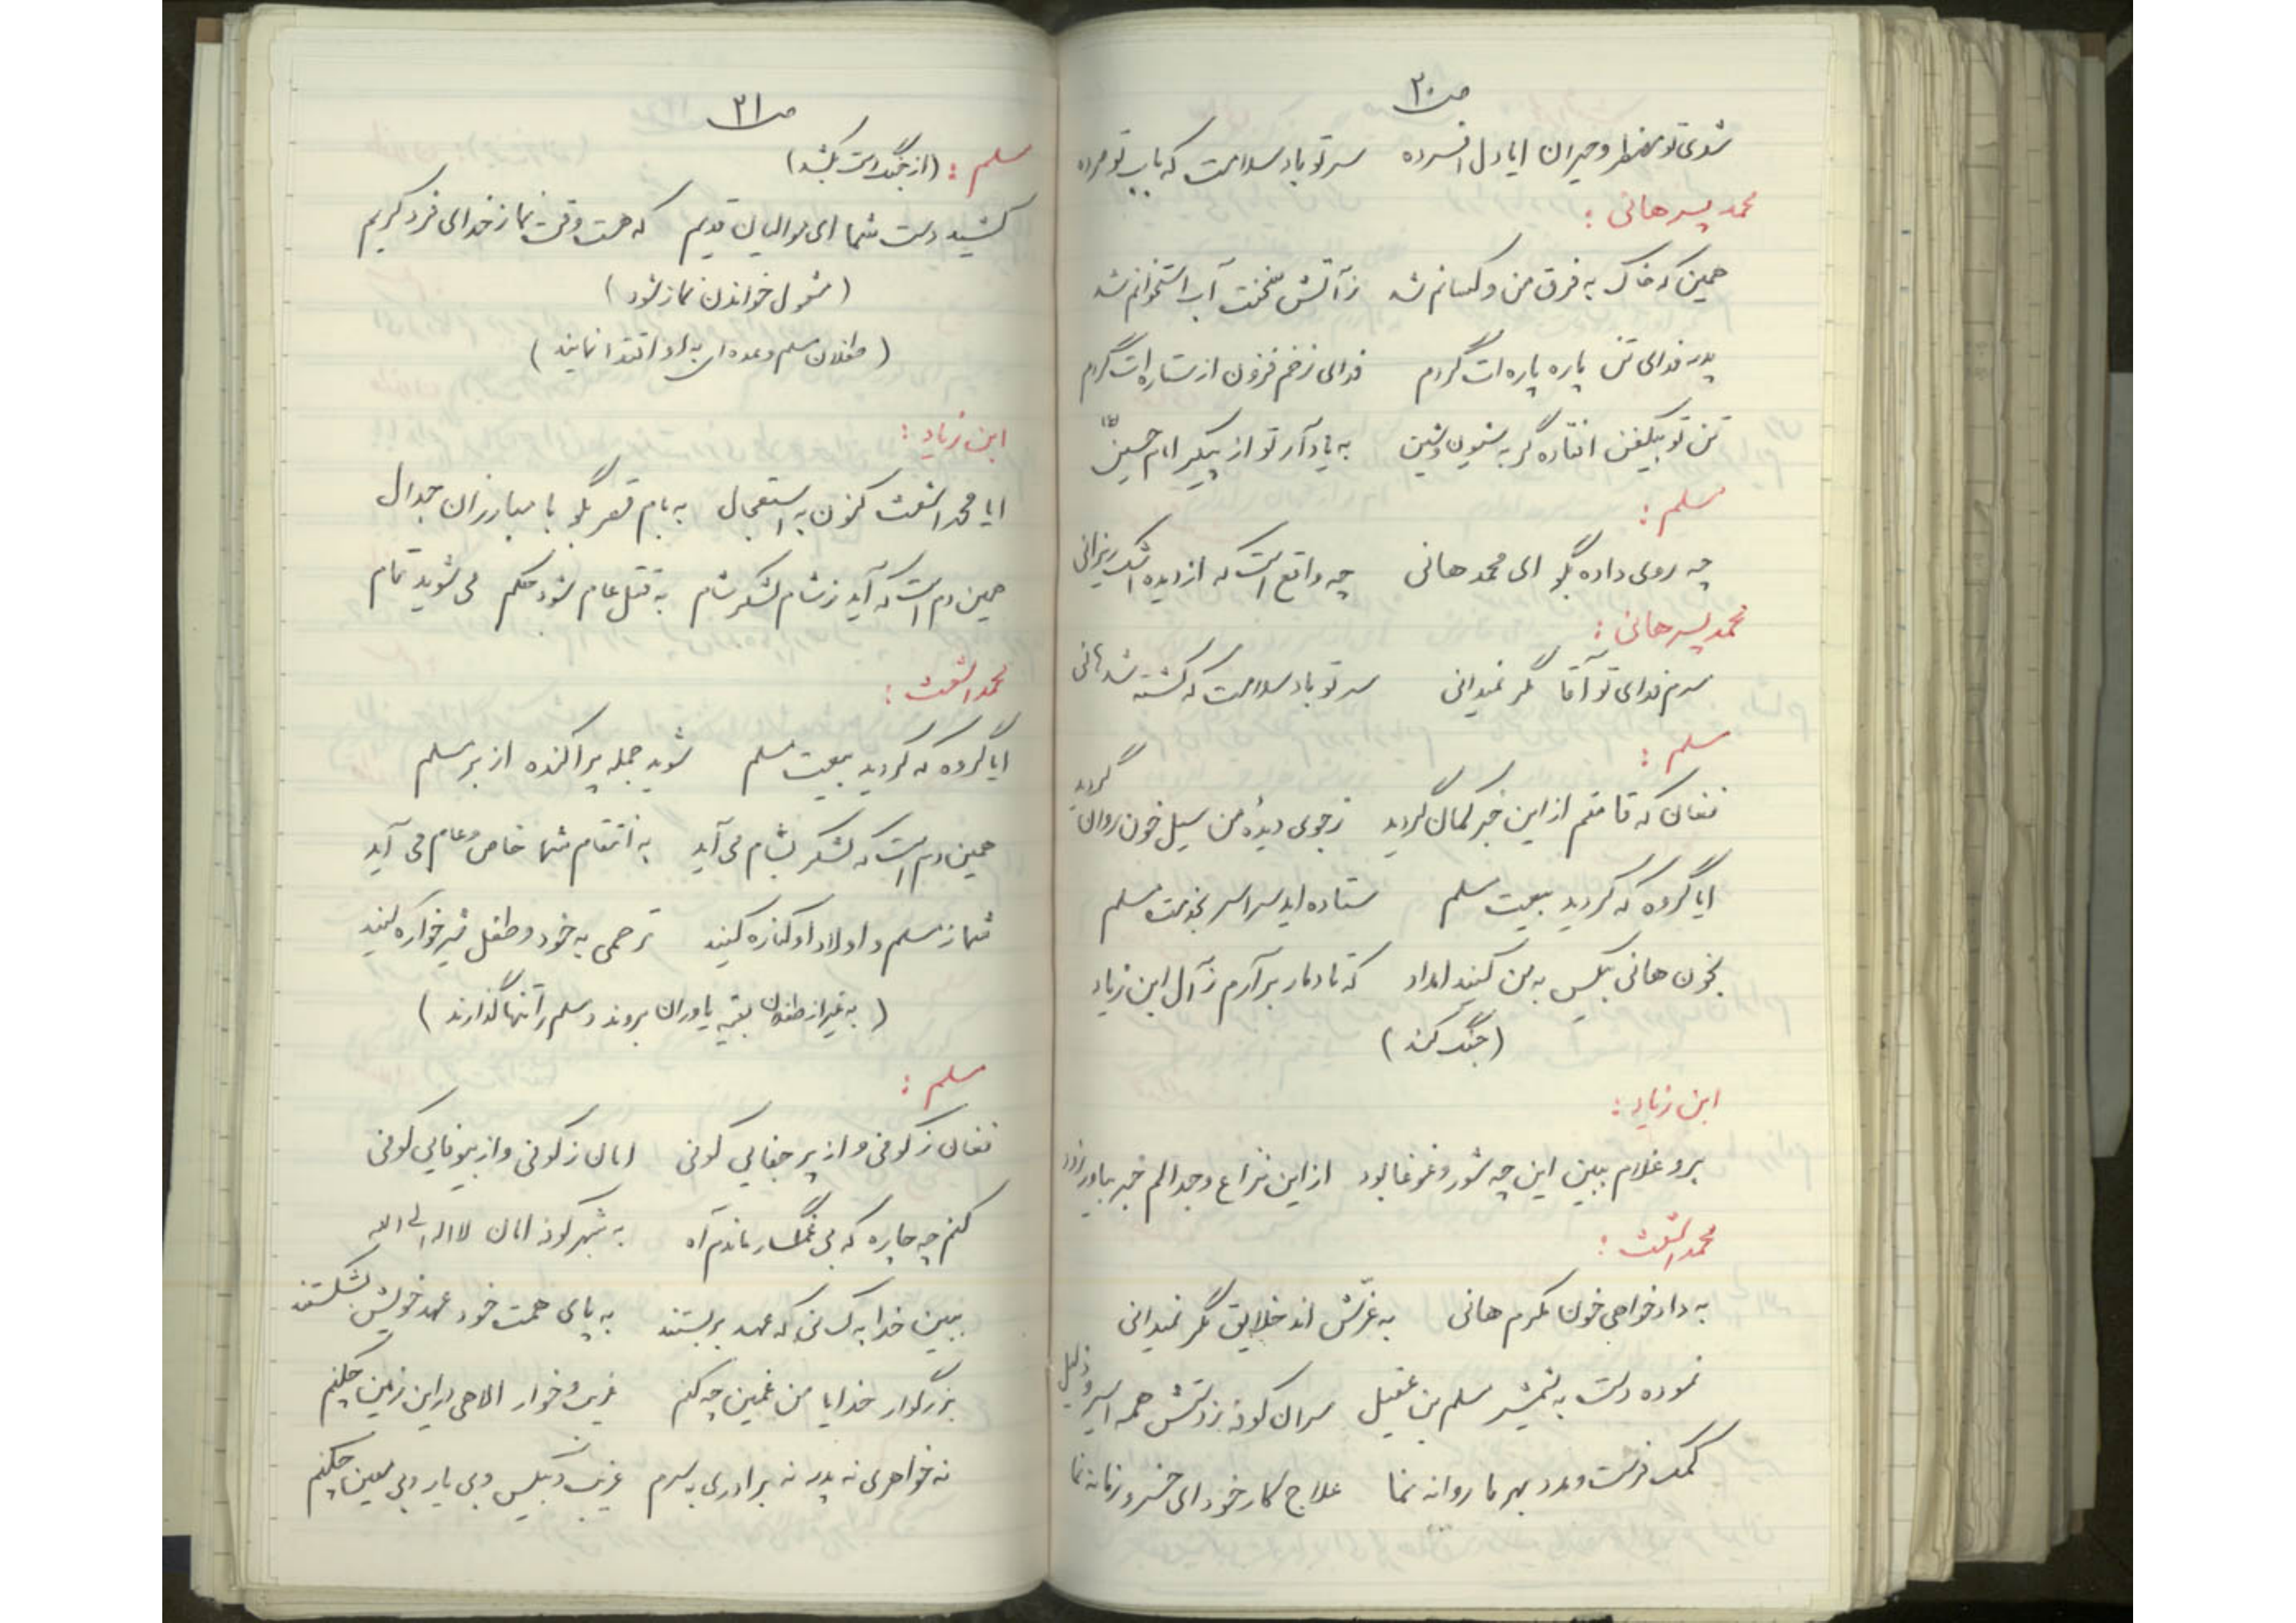 ص۳۰
شدی تو مضطر و حیران ایا دل افسرده    سر تو باد سلامت که باب تو مرده
محمد پسر هانی :
همین که خاک به فرق من و کسانم شد    ز آتش آب استخوانم شد
پدر فدای تن پاره پاره ات گردم    فدای زخم فزون از ستاره ات گردم
تن تو بیکفن افتاده گر به شیون و شین    به یاد آر تو از پیکر امام حسین ع
مسلم :
چه روی داده بگو ای محمد هانی    چه واقع است که از دیده اشک ریزانی
محمد پسر هانی :
سرم فدای تو آقا مگر نمیدانی    سر تو باد سلامت که کشته شد هانی
مسلم :
فغان که قامتم از این خبر کمان گردید    ز جوی دیده من سیل خون روان گردید
ایا گروه که کردید بیعت مسلم    ستاده اید سراسر بخدمت مسلم
بخون هانی بیکس به من کنید امداد    که تا دمار بر آرم ز آل ابن زیاد
( جنگ کند )
ابن زیاد :
برو غلام ببین این چه شور و غوغا بود    از این نزاع و جدالم خبر بیاور زود
محمد اشعث :
به دادخواهی خون مکرم هانی    به غرش اند خلایق مگر نمیدانی
نموده دست به شمشیر مسلم بن عقیل    سران کوفه ز دستش همه اسیر و ذلیل
کمک فرست و مدد بهر ما روانه نما    علاج کار خود ای خسرو زمانه نما
ص۳۱
مسلم : (از جنگ دست بکشد)
کشید دست شما ای موالیان قدیم    که هست وقت نماز خدای فرد کریم
( مشغول خواندن نماز شود )
( طفلان مسلم و عده ای به او اقتدا نمایند )
ابن زیاد :
ایا محمد اشعث کنون به استعجال    به بام قصر بگو با مبارزان جدال
همین دم است که آید ز شام لشکر شام    به قتل عام شود حکم می شوید تمام
محمد اشعث :
ایا گروه که کردید بیعت مسلم    شوید جمله پراکنده از بر مسلم
همین دم است که لشکر بشام می آید    به انتقام شما خاص و عام می آید
شما ز مسلم و اولاد او کناره کنید    ترحمی به خود و طفل شیرخواره کنید
( به غیر از طفلان بقیه یاوران بروند و مسلم را تنها گذارند )
مسلم :
فغان ز کوفی و از پر جفایی کوفی    امان ز کوفی و از بیوفایی کوفی
کنم چه چاره که بی غمگسار ماندم آه    به شهر کوفه امان لا اله الی الله
ببین خدا به کسانی که عهد بر بستند    به پای همت خود عهد خویش بشکستند
بزرگوار خدایا من غمین چه کنم    غریب و خوار الاهی در این زمین چکنم
نه خواهری نه پدر نه برادری به سرم    غریب و بیکس و بی یار و بی معین چکنم